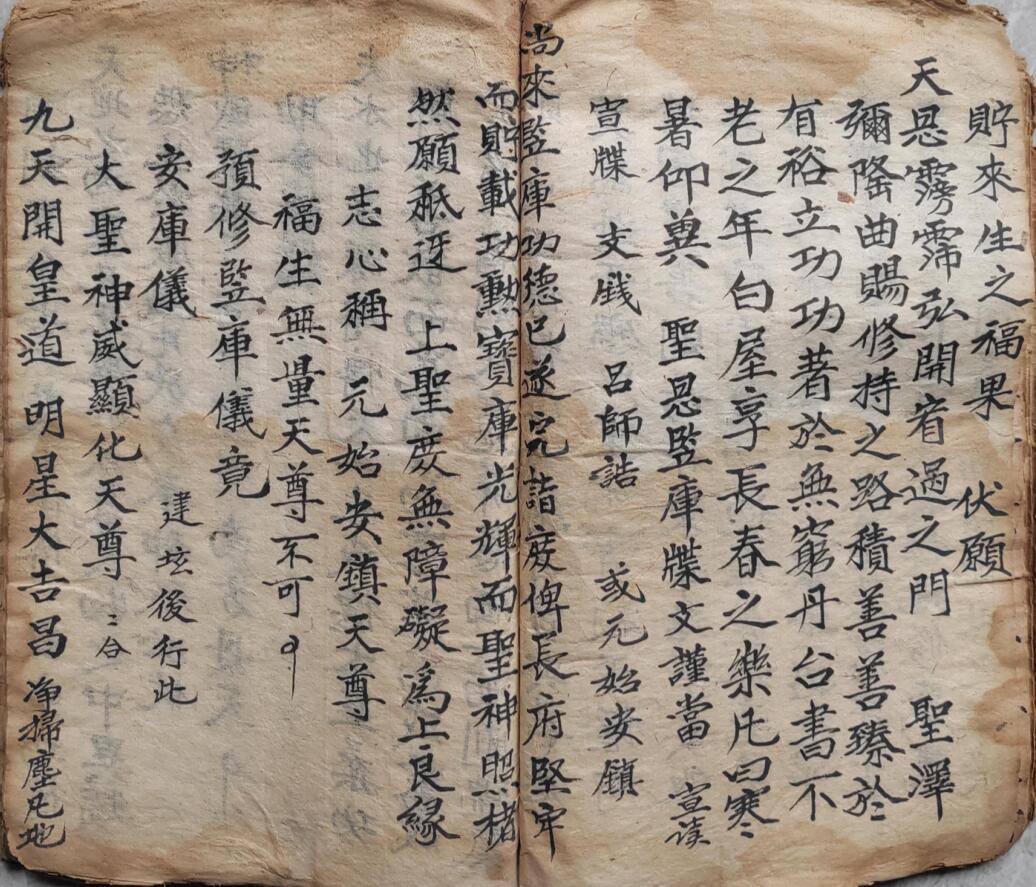 貯來生之福果　伏願
天恩霶霈弘開宥過之門　聖澤
彌隆曲賜修持之路積善善臻於
有裕立功功著於無窮丹台書不
老之年白屋享長春之樂凡曰寒
暑仰奠　聖恩監庫牒文謹當　宣讀
宣牒　支錢　呂師誥　或元始安鎮
尚來監庫功德已遂完諧庶俾長府堅牢
而貯載功勲寳庫光輝而聖神照楮
然願秪迓　上聖庶無障礙爲上良緣
志心稱　元始安鎮天尊
福生無量天尊不可
預修監庫儀竟
安庫儀　建垓後行此
大聖神威顯化天尊　合
九天開皇道　明星大吉昌　净掃塵凡地